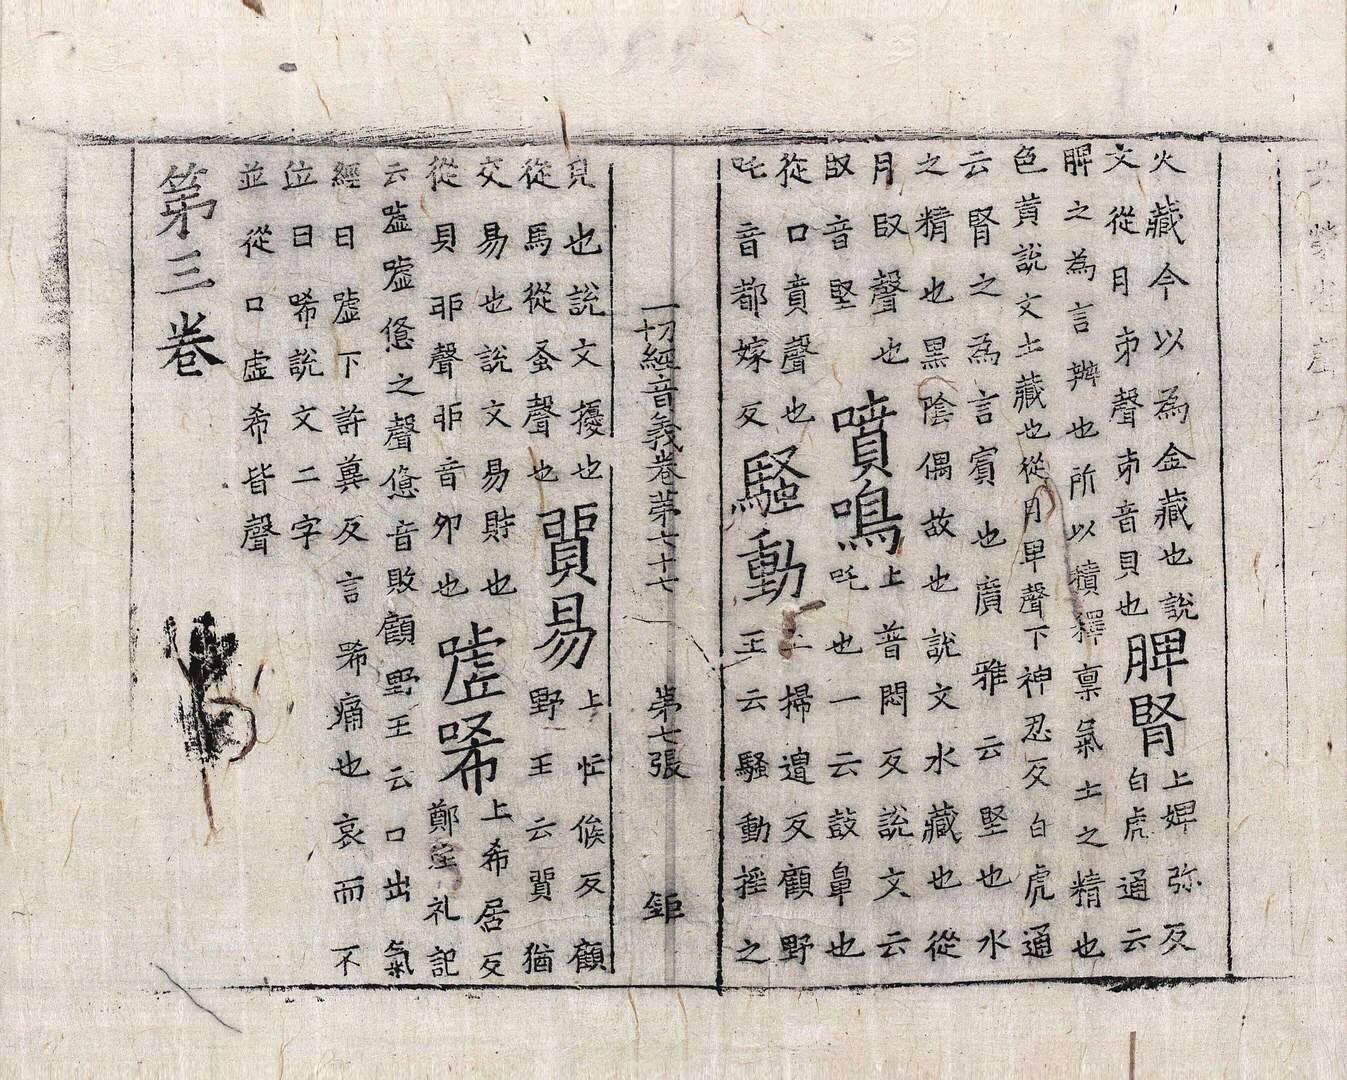 火藏今以為金藏也說
文從月市聲市音貝也
脾腎
上婢弥反
白虎通云
脾之為言辨也所以積釋禀氣土之精也
色黃說文土藏也從月卑聲下神忍反白虎通
云腎之為言賓也廣雅云堅也水
之精也黑陰偶故也說文水藏也從
月臤聲也
臤音堅
噴鳴
上普悶反說文云
吒也一云鼓鼻也
從口賁聲也
吒音都嫁反
騷動
上掃遭反顧野
王云騷動揺之
一切經音義卷第七十七 第七張 鉅
皃也說文擾也
從馬從蚤聲也
貿易
上恾候反顧
野王云貿猶
交易也說文易財也
從貝丣聲丣音夘也
噓唏
上希居反
鄭注礼記
云噓噓憊之聲憊音敗顧野王云口出氣
經曰噓下許冀反言唏痛也哀而不
位曰唏說文二字
並從口虛希皆聲
第三卷